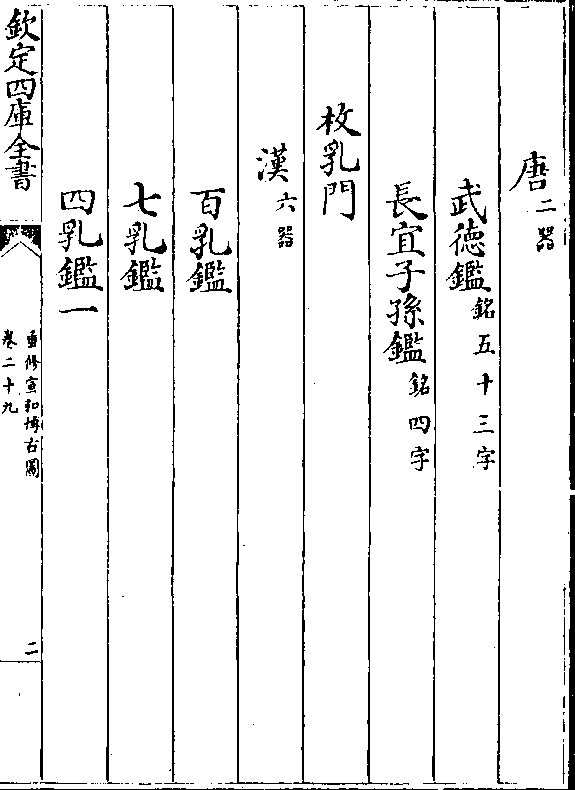 唐二器
武徳鑑銘五十三字
長宜子孫鑑銘四字
枚乳門
漢六器
百乳鑑
七乳鑑
四乳鑑一
欽定四庫全書
重修宣和博古圖
卷二十九
二